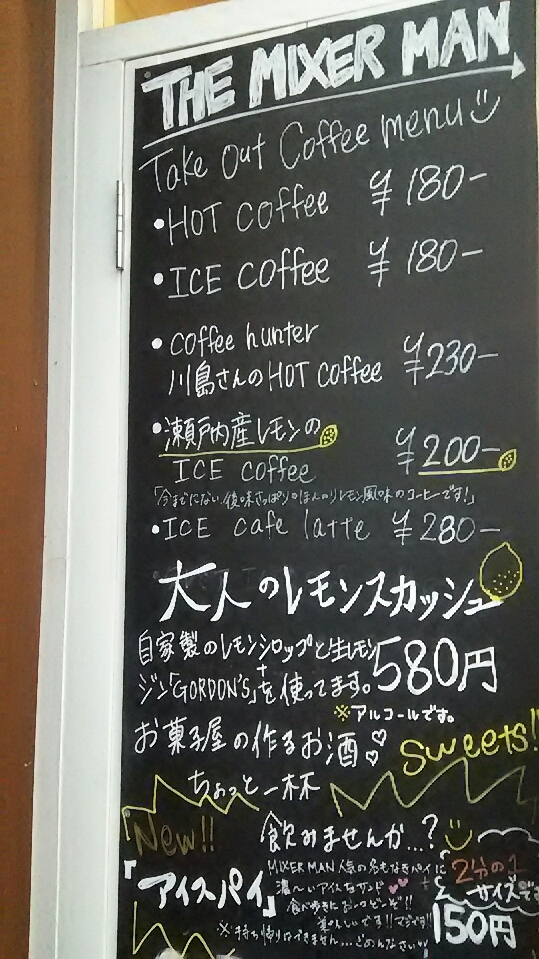 THE MIXER MAN
Take Out Coffee menu
・HOT coffee ¥180-
・ICE coffee ¥180-
・coffee hunter
川島さんのHOT coffee ¥230-
・瀬戸内産レモンの
ICE coffee ¥200-
「今までにない、後味さっぱりのほんのりレモン風味のコーヒーです!」
・ICE cafe latte ¥280-
大人のレモンスカッシュ
自家製のレモンシロップと生レモン
+
ジン「GORDON'S」を使ってます。
580円
※アルコールです。
お菓子屋の作るお酒♡
Sweets!!
ちょっと一杯
飲みませんか…?
New!!
「アイスパイ」
MIXER MAN人気の名もなきパイに
濃〜いアイスをサンド
食べ歩きにお一つどーぞ!!
※持ち帰りはできません…ごめんなさい
2分の1
サイズで
150円